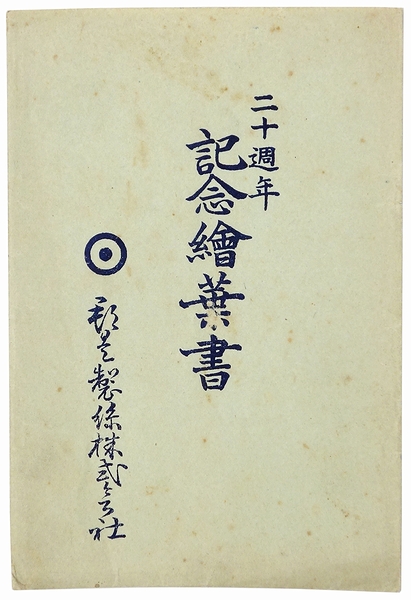 二十週年
記念繪葉書
郡是製絲株式会社